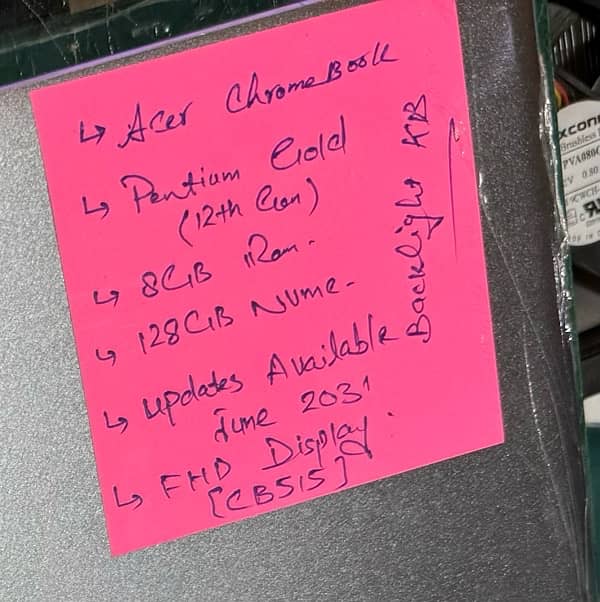 ↳ Acer ChromeBook
↳ Pentium Gold
(12th Gen)
↳ 8GB Ram.
↳ 128GB Nvme.
↳ updates Available
June 2031
↳ FHD Display.
[CB515]
Backlight KB
XCON
Brushless
PVA080G
V 0.80